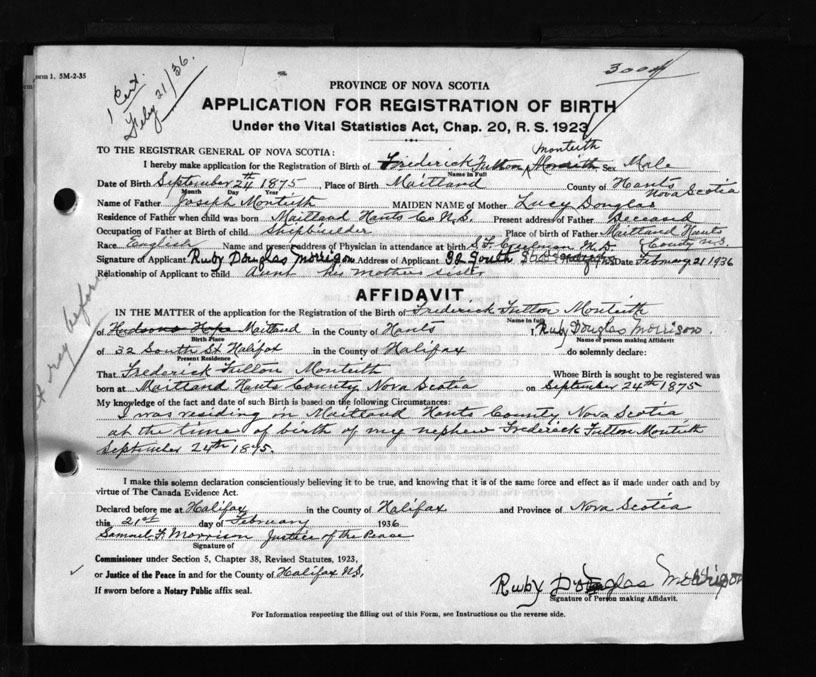 orm 1. 5M-2-35
1 Cert.
Feby 21/36.
PROVINCE OF NOVA SCOTIA
APPLICATION FOR REGISTRATION OF BIRTH
Under the Vital Statistics Act, Chap. 20, R. S. 1923
TO THE REGISTRAR GENERAL OF NOVA SCOTIA:
Monteith
I hereby make application for the Registration of Birth of Frederick Fulton Sex Male
Name in Full
Date of Birth September 24th 1875, Place of Birth Maitland County of Hants
Month Day Year Nova Scotia
Name of Father Joseph Monteith MAIDEN NAME of Mother Lucy Douglas
Residence of Father when child was born Maitland Hants Co N.S. Present address of Father Deceased
Occupation of Father at Birth of child Shipbuilder Place of birth of Father Maitland Hants
Race English Name and present address of Physician in attendance at birth S. F. M.D. County N.S.
Signature of Applicant Ruby Douglas Morrison Address of Applicant 32 South St Date February 21 1936
Relationship of Applicant to child Aunt his mothers sister
AFFIDAVIT
IN THE MATTER of the application for Registration of the Birth of Frederick Fulton Monteith
Name in full
of Maitland in the County of Hants I, Ruby Douglas Morrison
Birth Place Name of person making Affidavit
of 32 South St Halifax in the County of Halifax do solemnly declare:
Present Residence
That Frederick Fulton Monteith Whose Birth is sought to be registered was
born at Maitland Hants County Nova Scotia on September 24th 1875
My knowledge of the fact and date of such Birth is based on the following Circumstances:
I was residing in Maitland Hants County Nova Scotia
at the time of birth of my nephew Frederick Fulton Monteith
September 24th 1875.
I make this solemn declaration conscientiously believing it to be true, and knowing that it is of the same force and effect as if made under oath and by
virtue of The Canada Evidence Act.
Declared before me at Halifax in the County of Halifax and Province of Nova Scotia
this 21st day of February 1936
Samuel F. Morrison Justice of the Peace
Signature of
Commissioner under Section 5, Chapter 38, Revised Statutes, 1923,
or Justice of the Peace in and for the County of Halifax N.S.
If sworn before a Notary Public affix seal.
Ruby Douglas Morrison
Signature of Person making Affidavit.
For Information respecting the filling out of this Form, see Instructions on the reverse side.